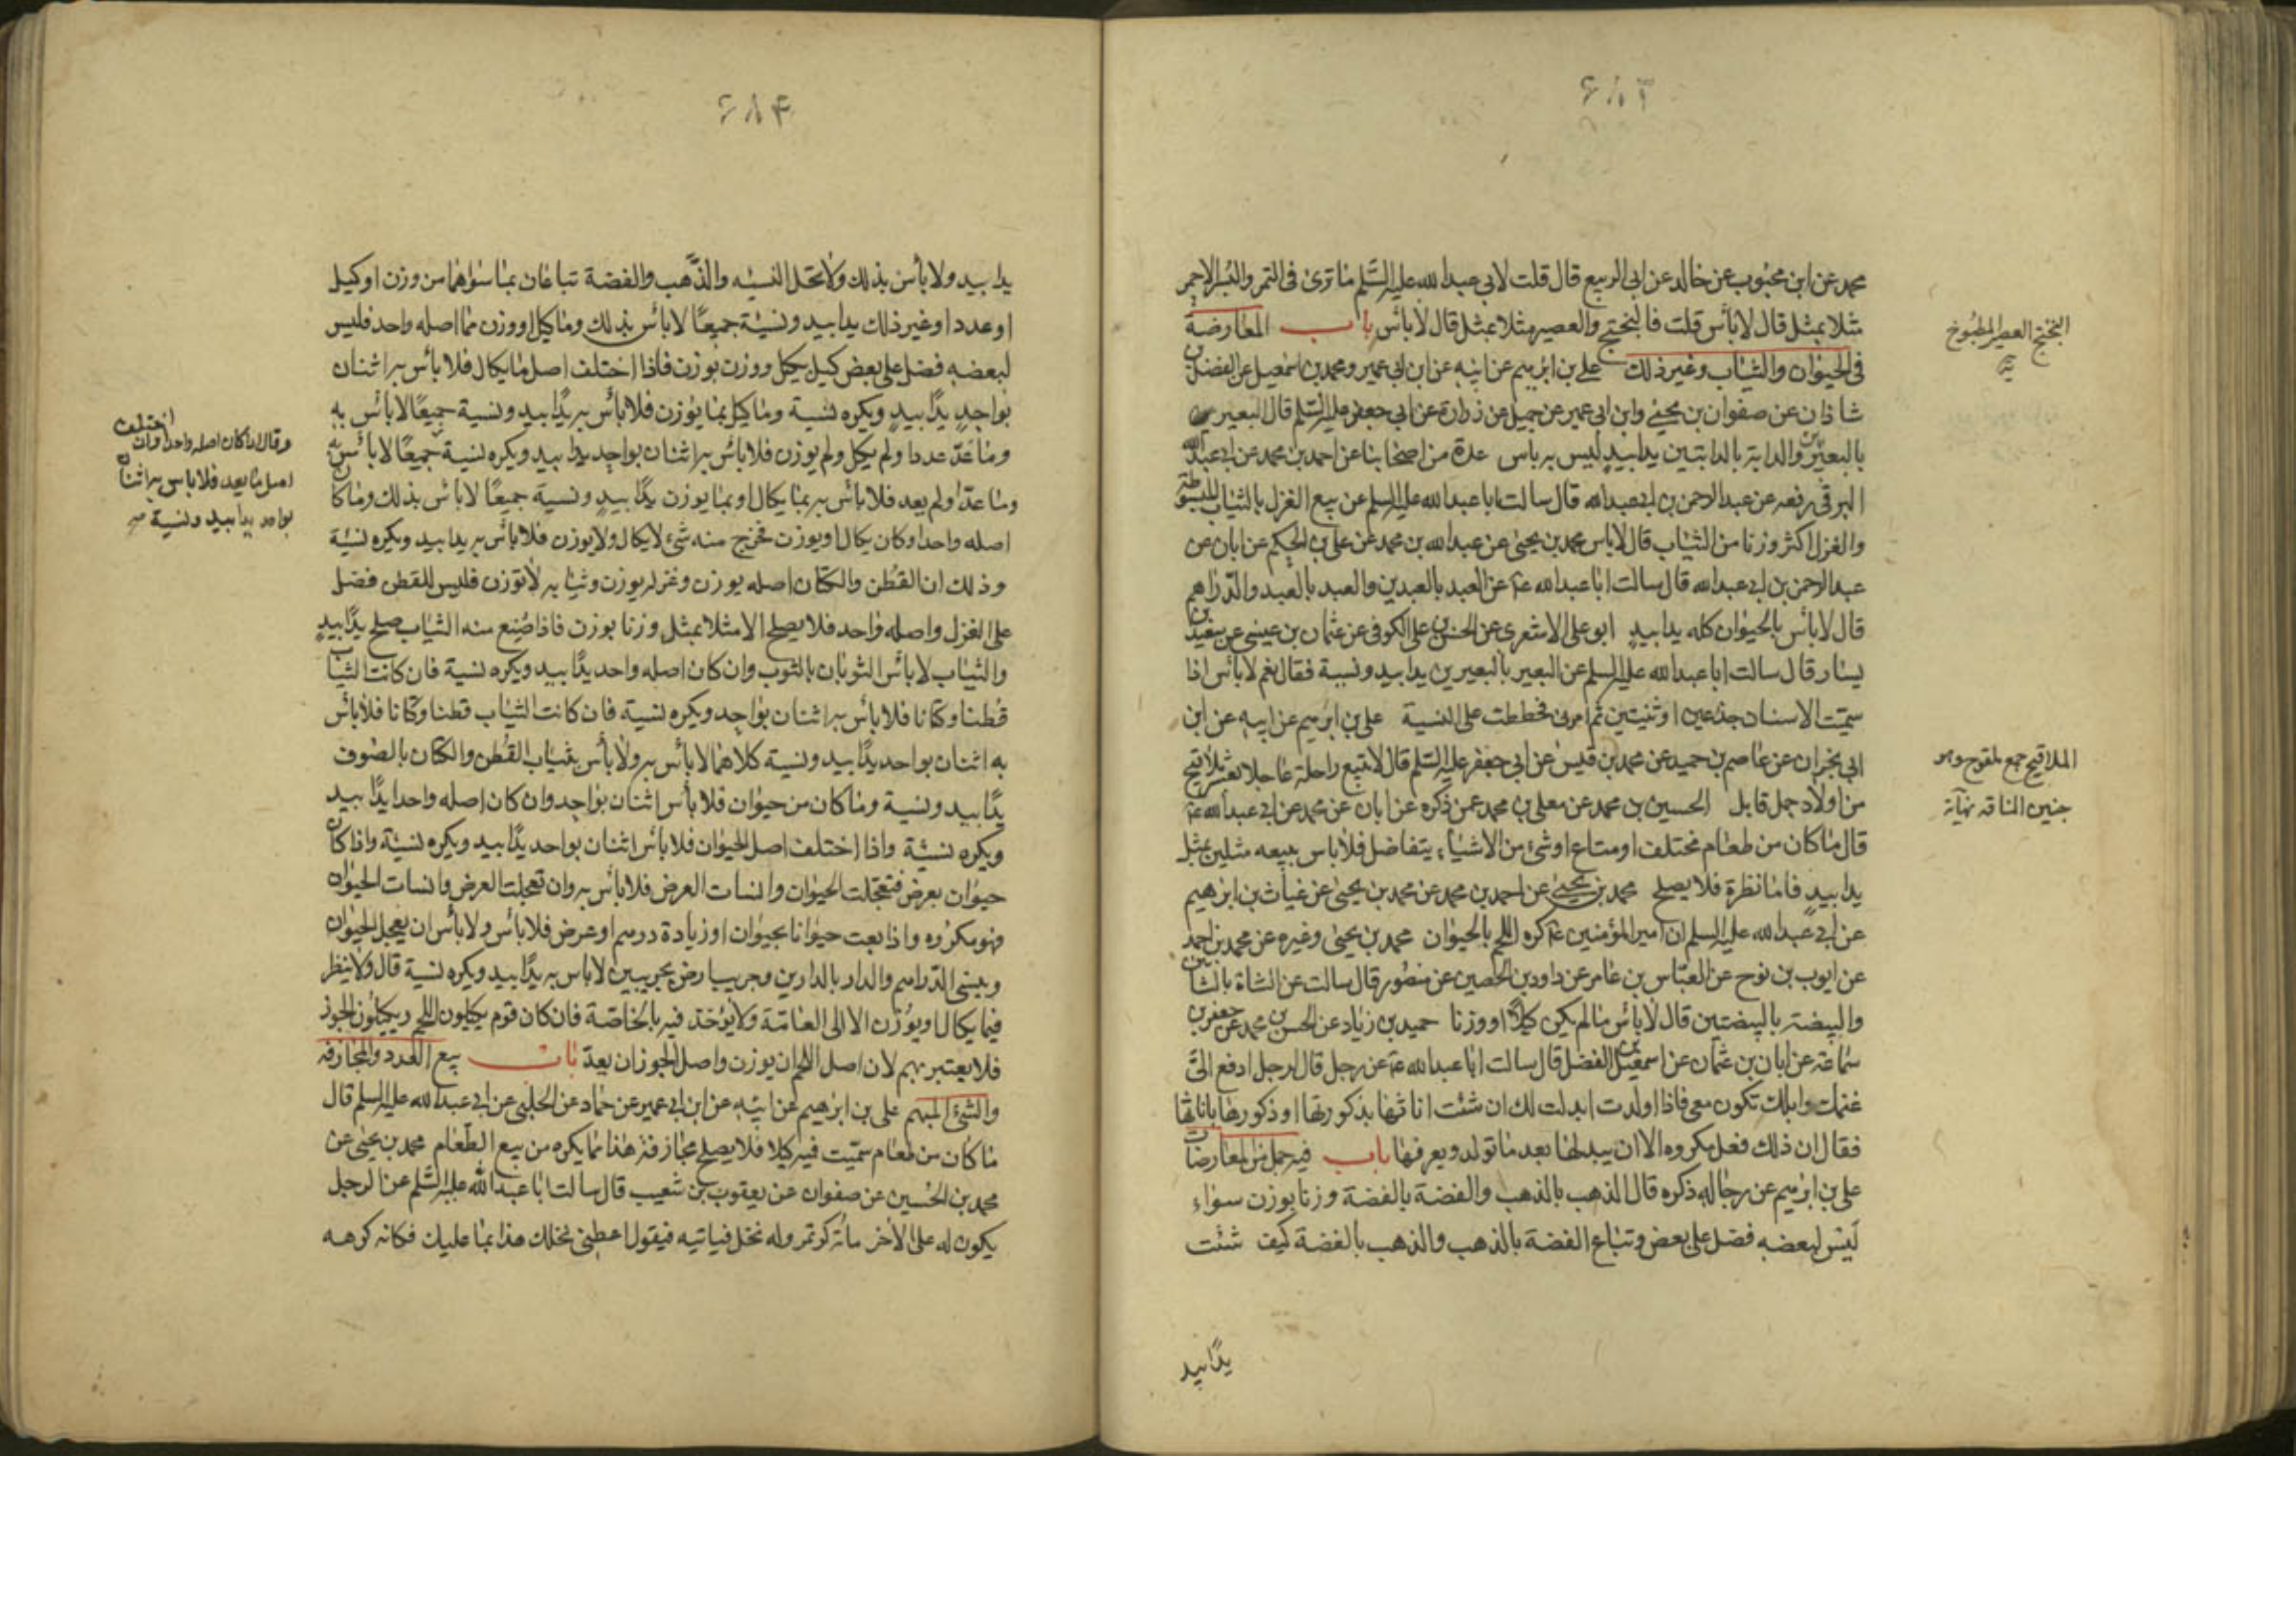 ۶۸۳
محمد عن ابن محبوب عن خالد عن ابى الربيع قال قلت لابى عبد الله عليه السلم ما ترى فى التمر والبسر الاحمر
مثلا بمثل قال لا بأس قلت فالبختج والعصير مثلا بمثل قال لا بأس باب المعارضة
فى الحيوان والثياب وغير ذلك على بن ابرهيم عن ابيه عن ابن ابى عمير ومحمد بن اسمعيل عن الفضل بن
شاذان عن صفوان بن يحيى وابن ابى عمير عن جميل عن زرارة عن ابى جعفر عليه السلم قال البعير
بالبعيرين والدابة بالدابتين يدا بيد ليس به باس عدة من اصحابنا عن احمد بن محمد عن ابى عبد الله
البرقى رفعه عن عبد الرحمن بن ابى عبد الله قال سالت ابا عبد الله عليه السلم عن بيع الغزل بالثياب المبسوطة
والغزل اكثر وزنا من الثياب قال لا باس محمد بن يحيى عن عبد الله بن محمد عن على بن الحكم عن ابان عن
عبد الرحمن بن ابى عبد الله قال سالت ابا عبد الله ع عن العبد بالعبدين والعبد بالعبد والدراهم
قال لا بأس بالحيوان كله يدا بيد ابو على الاشعرى عن الحسن بن على الكوفى عن عثمان بن عيسى عن سعيد بن
يسار قال سالت ابا عبد الله عليه السلم عن البعير بالبعيرين يدا بيد ونسية فقال نعم لا بأس اذا
سميت الاسنان جذعين او ثنيتين ثم امرنى فخططت على النسية على بن ابرهيم عن ابيه عن ابن
ابى نجران عن عاصم بن حميد عن محمد بن قيس عن ابى جعفر عليه السلم قال لا تبيع راحلة عاجلا بعشر ملاقيح
من اولاد جمل قابل الحسين بن محمد عن معلى بن محمد عمن ذكره عن ابان عن محمد عن ابى عبد الله ع
قال ما كان من طعام مختلف او متاع او شئ من الاشياء يتفاضل فلا باس ببيعه مثلين بمثل
يدا بيد فاما نظرة فلا يصلح محمد بن يحيى عن احمد بن محمد عن محمد بن يحيى عن غياث بن ابرهيم
عن ابى عبد الله عليه السلم ان امير المؤمنين ع كره اللحم بالحيوان محمد بن يحيى وغيره عن محمد بن احمد
عن ايوب بن نوح عن العباس بن عامر عن داود بن الحصين عن منصور قال سالت عن الشاة بالشاتين
والبيضة بالبيضتين قال لا بأس ما لم يكن كيلا او وزنا حميد بن زياد عن الحسن بن محمد عن جعفر بن
سماعة عن ابان بن عثمان عن اسمعيل بن الفضل قال سالت ابا عبد الله ع عن رجل قال لرجل ادفع الى
غنمك وابلك تكون معى فاذا اولدت ابدلت لك ان شئت اناثها بذكورتها او ذكورها باناثها
فقال ان ذلك فعل مكروه الا ان يبدلها بعد ما تولد ويعرفها باب فيه جمل من المعارضات
على بن ابرهيم عن رجاله ذكره قال الذهب بالذهب والفضة بالفضة وزنا بوزن سواء
ليس لبعضه فضل على بعض وتباع الفضة بالذهب والذهب بالفضة كيف شئت
يدا بيد
البختج العصير المطبوخ
يه
الملاقيح جمع ملقوح وهو
جنين الناقة نهاية
۶۸۴
يدا بيد ولا بأس بذلك ولا تحل النسية والذهب والفضة تباعان بما سواهما من وزن او كيل
او عدد او غير ذلك يدا بيد ونسية جميعا لا بأس بذلك وما كيل او وزن مما اصله واحد فليس
لبعضه فضل على بعض كيل بكيل ووزن بوزن فاذا اختلف اصل ما يكال فلا بأس به اثنان
بواحد يدا بيد ويكره نسية وما كيل بما يوزن فلا بأس به يدا بيد ونسية جميعا لا بأس به
وما عد عددا ولم يكل ولم يوزن فلا بأس به اثنان بواحد يدا بيد ويكره نسية جميعا لا بأس به
وما عد او لم يعد فلا بأس به بما يكال او بما يوزن يدا بيد ونسية جميعا لا بأس بذلك وما كان
اصله واحدا وكان يكال او يوزن فخرج منه شئ لا يكال ولا يوزن فلا بأس به يدا بيد ويكره نسية
وذلك ان القطن والكتان اصله يوزن وغزله يوزن وثيابه لا توزن فليس للقطن فضل
على الغزل واصله واحد فلا يصلح الا مثلا بمثل وزنا بوزن فاذا صنع منه الثياب صلح يدا بيد
والثياب لا بأس الثوبان بالثوب وان كان اصله واحد يدا بيد ويكره نسية فان كانت الثياب
قطنا وكتانا فلا بأس به اثنان بواحد ويكره نسية فان كانت الثياب قطنا وكتانا فلا بأس
به اثنان بواحد يدا بيد ونسية كلاهما لا بأس به ولا بأس بثياب القطن والكتان بالصوف
يدا بيد ونسية وما كان من حيوان فلا بأس اثنان بواحد وان كان اصله واحدا يدا بيد
ويكره نسية واذا اختلف اصل الحيوان فلا بأس اثنان بواحد يدا بيد ويكره نسية واذا كان
حيوان بعرض فتعجلت الحيوان وانسات العرض فلا بأس به وان تعجلت العرض وانسات الحيوان
فهو مكروه واذا بعت حيوانا بحيوان او زيادة درهم او عرض فلا بأس ولا بأس ان يعجل الحيوان
وينسى الدراهم والدار بالدارين وجريب ارض بجريبين لا باس به يدا بيد ويكره نسية قال ولا ينظر
فيما يكال او يوزن الا الى العامة ولا يؤخذ فيه بالخاصة فان كان قوم يكيلون اللحم ويكيلون الجوز
فلا يعتبر بهم لان اصل اللحم ان يوزن واصل الجوز ان يعد باب بيع العدد والمجازفة
والشئ المبهم على بن ابرهيم عن ابيه عن ابن ابى عمير عن حماد عن الحلبى عن ابى عبد الله عليه السلم قال
ما كان من طعام سميت فيه كيلا فلا يصلح مجازفة هذا مما يكره من بيع الطعام محمد بن يحيى عن
محمد بن الحسين عن صفوان عن يعقوب بن شعيب قال سالت ابا عبد الله عليه السلم عن الرجل
يكون له على الاخر مائة كر تمر وله نخل فياتيه فيقول اعطنى نخلك هذا بما عليك فكانه كرهه
وقال اذا كان اصله واحدا وان اختلف
اصل ما يعد فلا باس به اثنان
بواحد يدا بيد ونسية صح